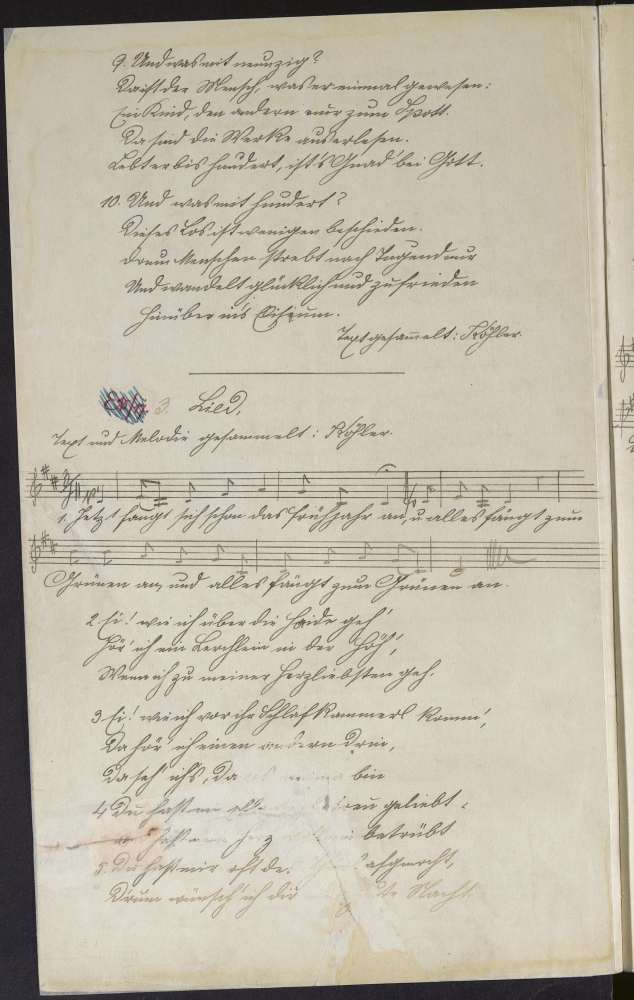 9. Und was mit neunzig?
Da ist der Mensch, was er einmal gewesen:
Ein Kind, den andern nur zum Spott.
Da sind die Werke auserlesen.
Lebt er bis hundert, ist's Gnad' bei Gott.
10. Und was mit hundert?
Dieses Los ist wenigen beschieden.
Drum Menschen strebt nach Tugend nur
Und wandelt glücklich und zufrieden
Hinüber in's Elisium.
Text gesam̄elt: Köhler.
3. Lied.
Text und Melodie gesammelt: Köhler.
1. Jetzt fängt sich schon das Frühjahr an, u. alles fängt zum
Grünen an, und alles fängt zum Grünen an.
2. Ei! wie ich über die Heide geh'
Hör' ich ein Lerchlein in der Höh',
Wenn ich zu meiner Herzliebsten geh.
3. Ei! wie ich vor ihr Schlafkammerl komm',
Da hör' ich einen andern drin,
Da seh' ich's, da bin
4. Du hast treu geliebt
hast Herz betrübt
5. Du hast mir oft
Drum wünsch' ich dir Nacht.